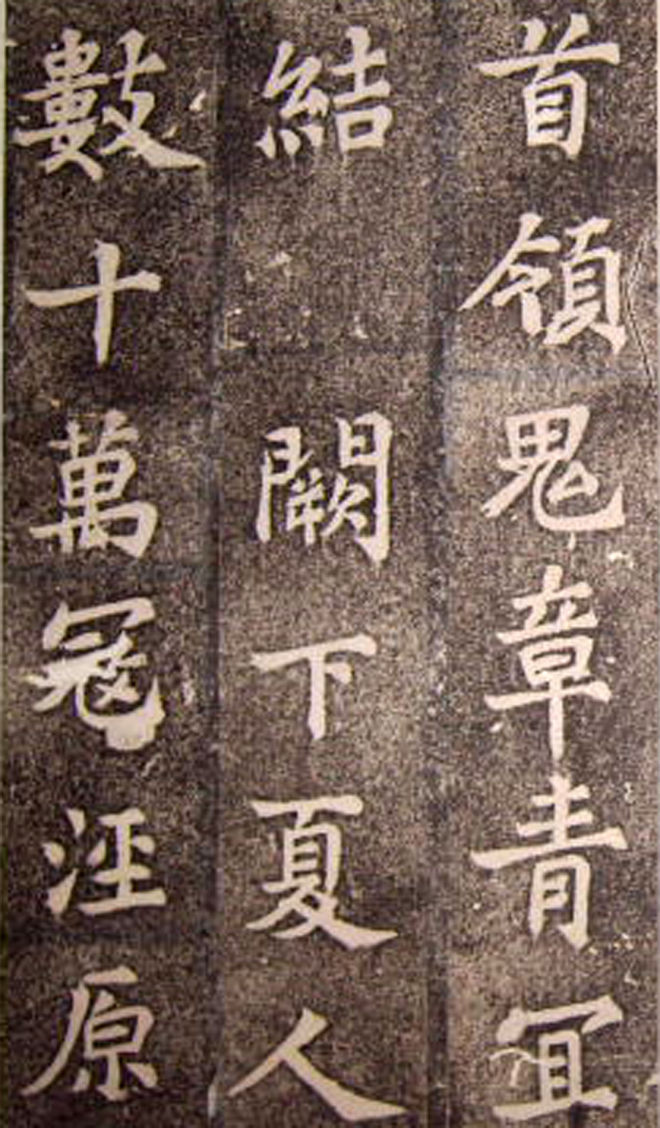 首領鬼章青冝
結闕下夏人
數十萬冦涇原